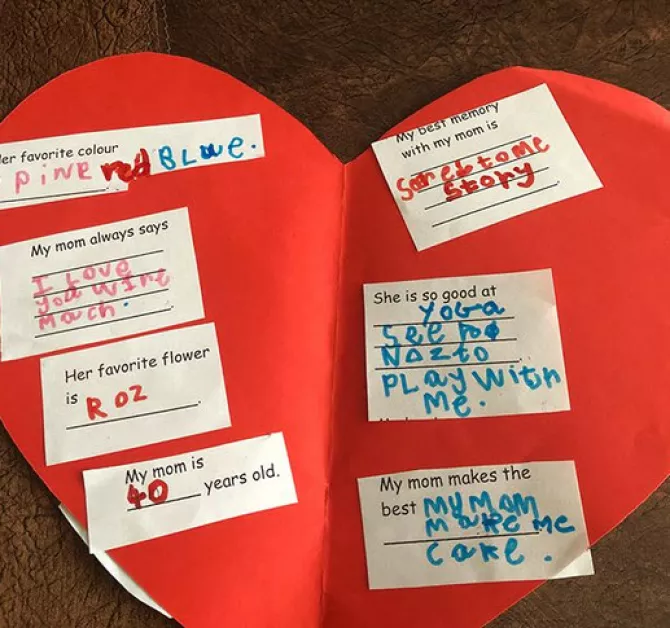 er favorite colour
PiNK red BLue.
My mom always says
I Love
you wire
Mach.
Her favorite flower
is ROZ.
My mom is
40 years old.
My best memory
with my mom is
Story
She is so good at
YOGA
See
NOZto
PLAY With
Me.
My mom makes the
best MY MOM
MaKe Me
CaKe.